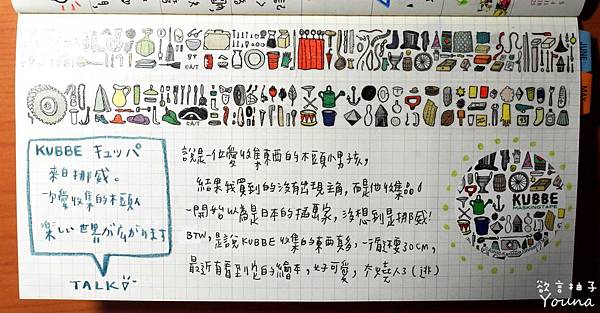 JUNE
MAY
KUBBE キュッパ
來自挪威。
一次愛收集的木頭人
楽しい世界が広がります
TALK
說是一位愛收集東西的木頭小男孩,
結果我買到的沒有出現主角,而是他收集品!
一開始以為是日本的插畫家,沒想到是挪威!
BTW,是說 KUBBE 收集的東西真多,一循環要30cm,
最近有看到他的繪本,好可愛,
KUBBE
MASKINGTAPE
欲言柚子
Youna